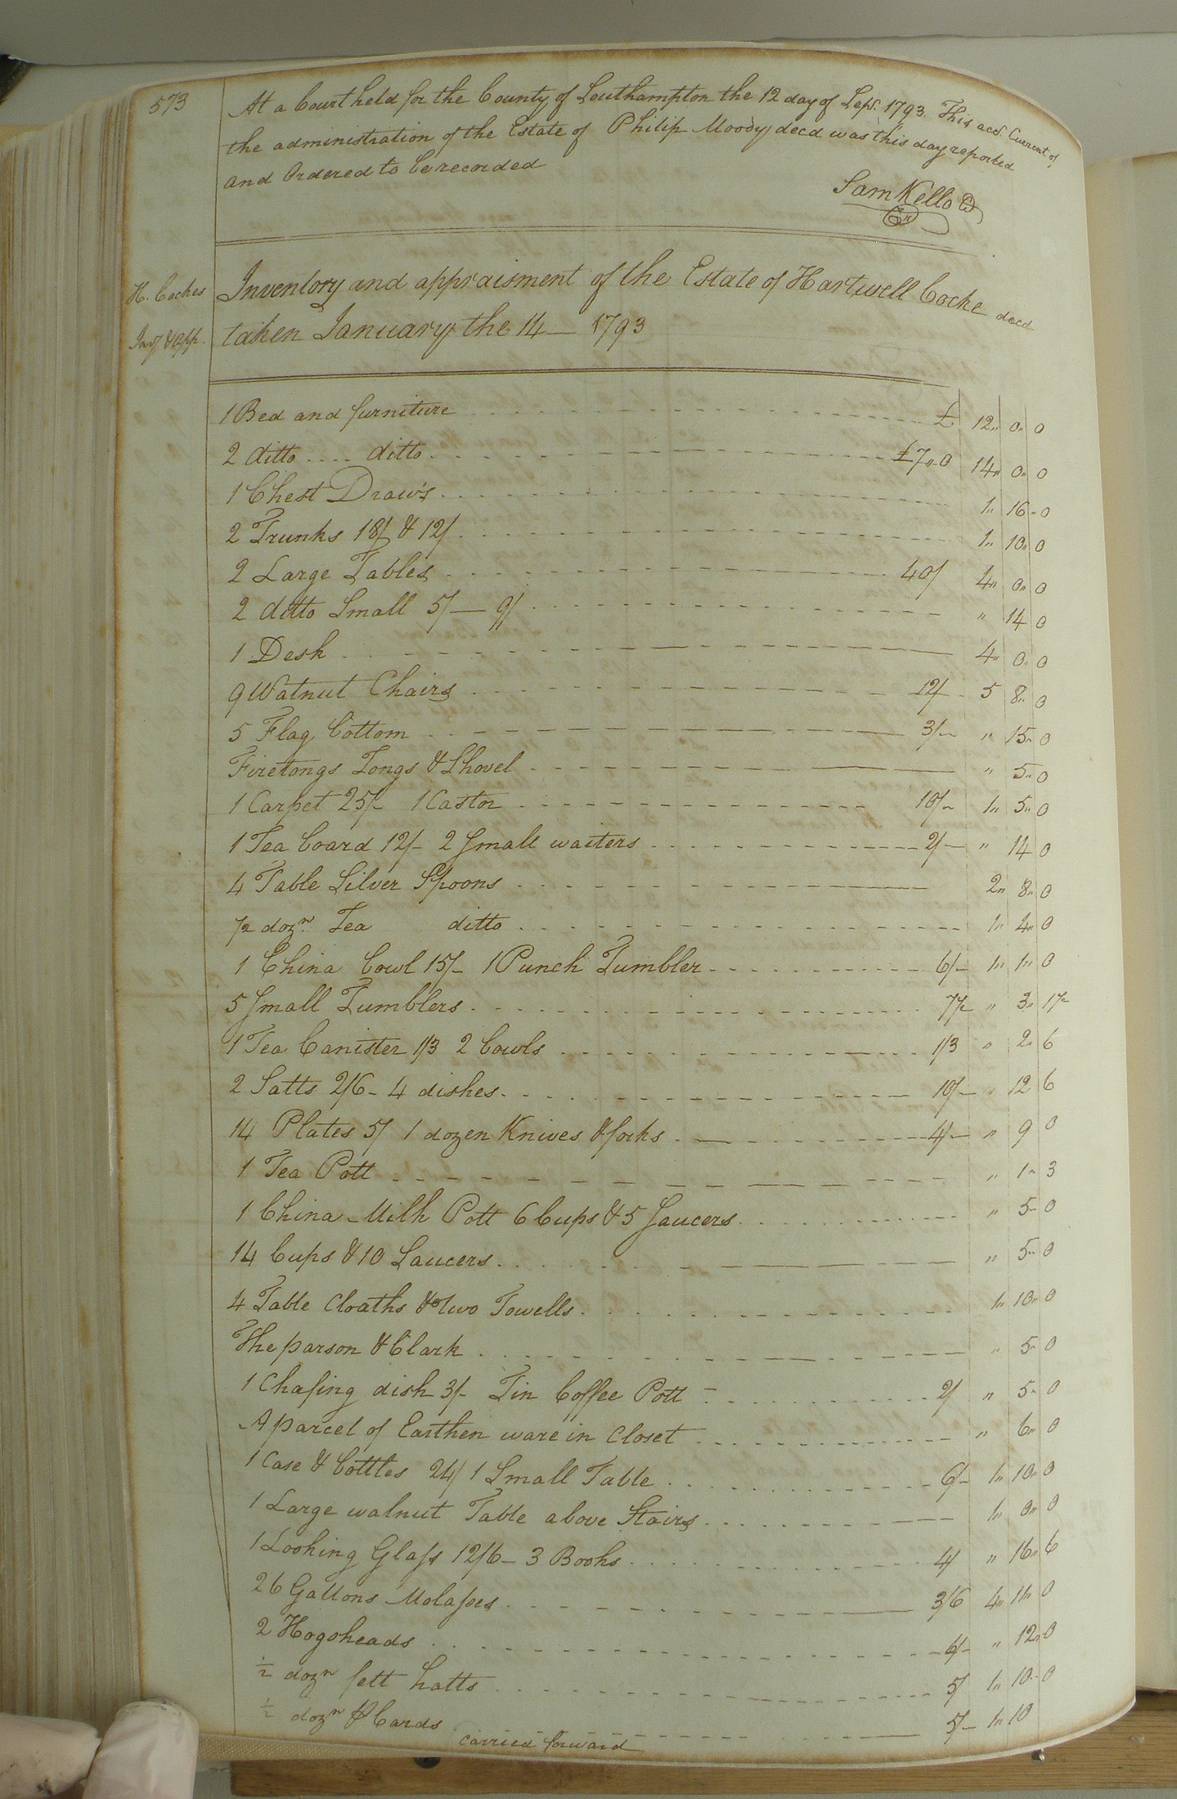 573
At a Court held for the County of Southampton the 12 day of Sepr. 1793. This acct Current of
the administration of the Estate of Philip Moody decd was this day reported
and Ordered to be recorded
Sam Kello
H. Cockes
Invy & App.
Inventory and appraisment of the Estate of Hartwell Cocke decd
taken January the 14 — 1793
1 Bed and furniture £ 12 " 0 " 0
2 ditto ditto £7 " 0 14 " 0 " 0
1 Chest Draw's 1 " 16 - 0
2 Trunks 18/ & 12/ 1 " 10 " 0
2 Large Tables 40/ 4 " 0 " 0
2 ditto Small 5/ — 9/ " 14 0
1 Desk 4 " 0 " 0
9 Walnut Chairs 12/ 5 8 " 0
5 Flag bottom 3/- " 15 - 0
Firetongs Tongs & Shovel " 5 " 0
1 Carpet 25/- 1 Castor 10/- 1 " 5 " 0
1 Tea board 12/- 2 Small waiters 2/- " 14 0
4 Table Silver Spoons 2 " 8 " 0
1/2 dozn Tea ditto 1 " 4 " 0
1 China bowl 15/- 1 Punch Tumbler 6/- 1 " 1 " 0
5 Small Tumblers 7 1/2 " 3 " 1 1/2
1 Tea Canister 1/3 2 bowls 1/3 " 2 " 6
2 Salts 2/6 - 4 dishes 10/- " 12 6
14 Plates 5/ 1 dozen Knives & forks 4/- " 9 0
1 Tea Pott " 1 " 3
1 China Milk Pott 6 Cups & 5 Saucers " 5 - 0
14 Cups & 10 Saucers " 5 " 0
4 Table Cloaths & two Towells 1 " 10 " 0
The parson & Clark " 5 - 0
1 Chafing dish 3/- Tin Coffee Pott 2/ " 5 - 0
A parcel of Earthen ware in Closet " 6 " 0
1 Case & bottles 24/ 1 Small Table 6/- 1 " 10 " 0
1 Large walnut Table above Stairs 1 " 0 " 0
1 Looking Glass 12/6 - 3 Books 4/ " 16 " 6
26 Gallons Molasses 3/6 4 " 11 " 0
2 Hogsheads 6/- " 12 " 0
1/2 dozn felt hatts 5/ 1 " 10 - 0
1/2 dozn Cards 5/- 1 " 10
carried forward